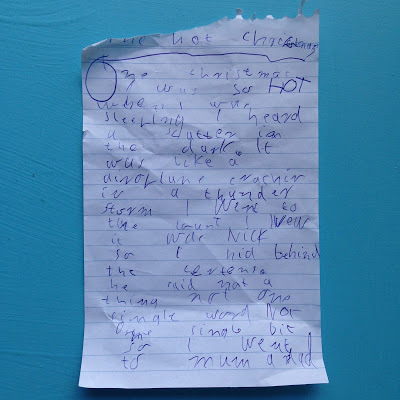 The hot Christmas
One christmas
I was so HOT
when I was
sleeping I heard
a scutter in
the dark. It
was like a
airoplane crashin
in a thunder
storm I went to
the
it was Nick
so I hid behind
the certense
he said not a
thing not one
single word Not
one single bit
so I went
to mum a dad